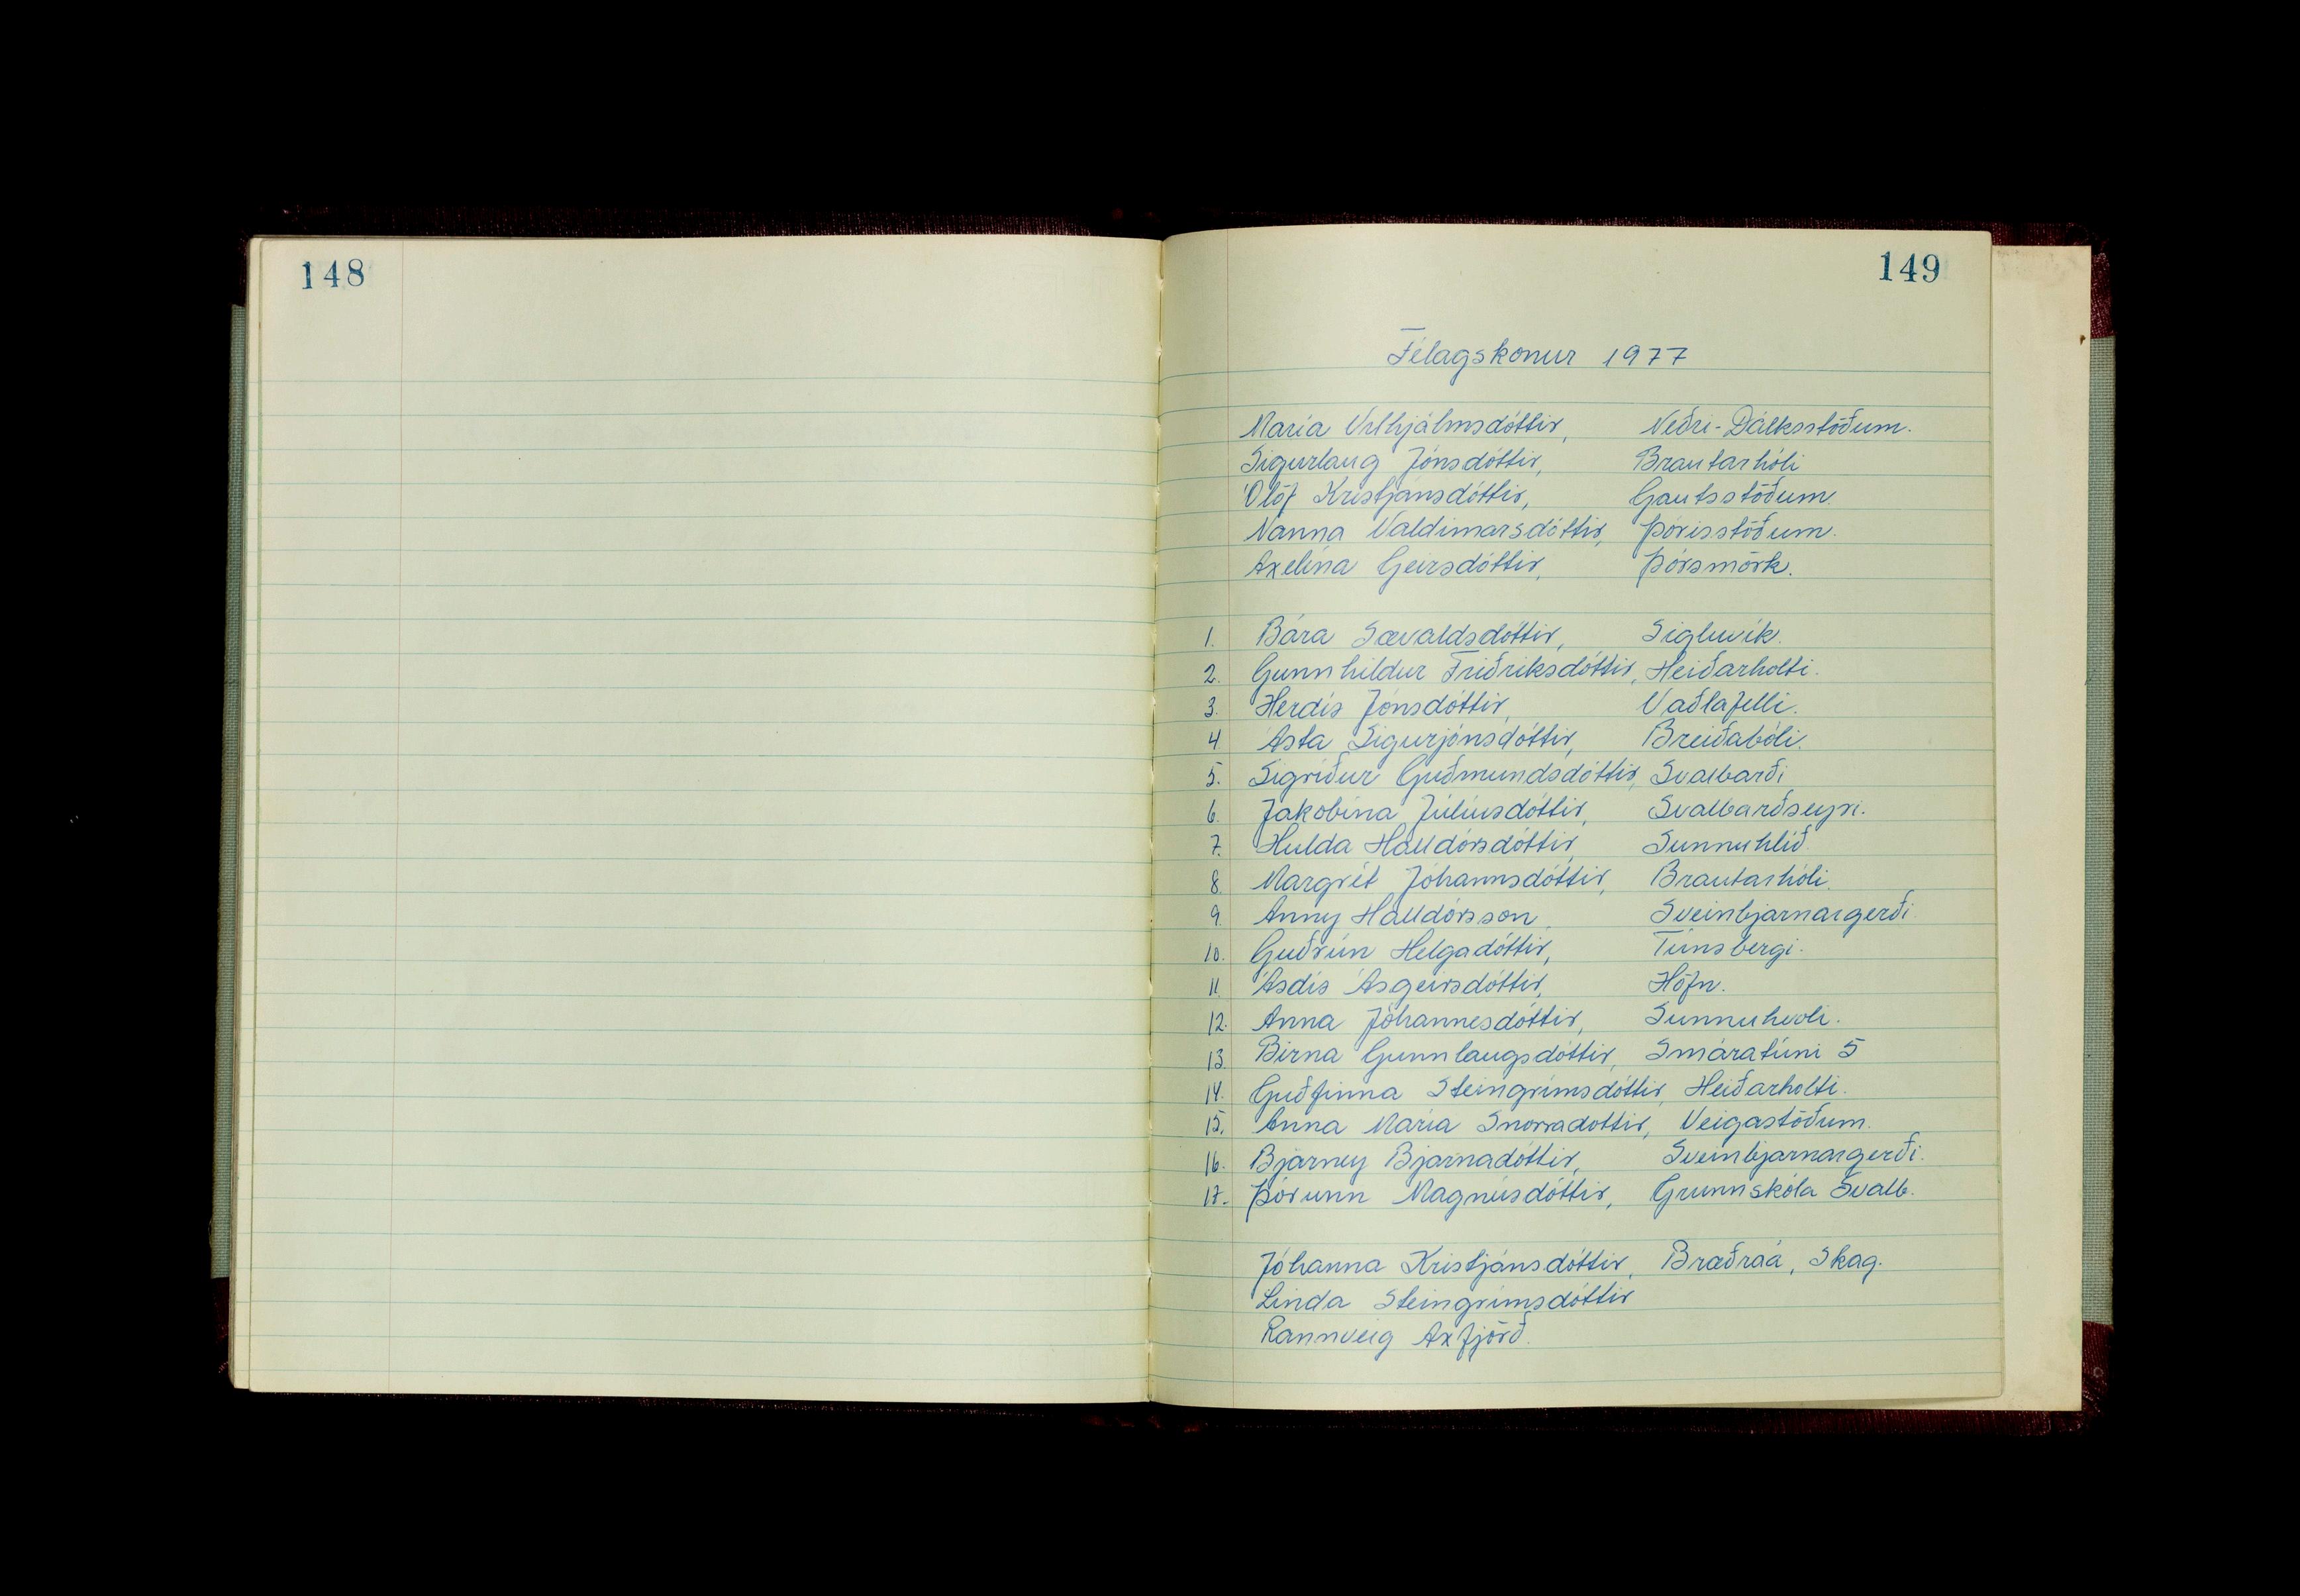 148
149
Félagskonur 1977
María Vilhjálmsdóttir, Neðri-Dálksstöðum.
Sigurlaug Jónsdóttir, Brautarhóli
Ólöf Kristjánsdóttir, Gautsstöðum.
Nanna Valdimarsdóttir, Þórisstöðum.
Axelína Geirsdóttir, Þórsmörk.
1. Bára Sævaldsdóttir, Sigluvík.
2. Gunnhildur Friðriksdóttir, Heiðarholti.
3. Herdís Jónsdóttir, Vaðlafelli.
4 Ásta Sigurjónsdóttir, Breiðabóli.
5. Sigríður Guðmundsdóttir, Svalbarði
6. Jakobína Júlíusdóttir, Svalbarðseyri.
7. Hulda Halldórsdóttir, Sunnuhlíð.
8. Margrét Jóhannsdóttir, Brautarhóli.
9. Anny Halldórsson, Sveinbjarnargerði.
10. Guðrún Helgadóttir, Túnsbergi.
11. Ásdís Ásgeirsdóttir, Höfn.
12. Anna Jóhannesdóttir, Sunnuhvoli.
13. Birna Gunnlaugsdóttir, Smáratúni 5
14. Guðfinna Steingrímsdóttir, Heiðarholti.
15. Anna María Snorradóttir, Veigastöðum.
16. Bjarney Bjarnadóttir, Sveinbjarnargerði.
17. Þórunn Magnúsdóttir, Grunnskóla Svalb.
Jóhanna Kristjánsdóttir, Bræðraá, Skag.
Linda Steingrímsdóttir
Rannveig Axfjörð.